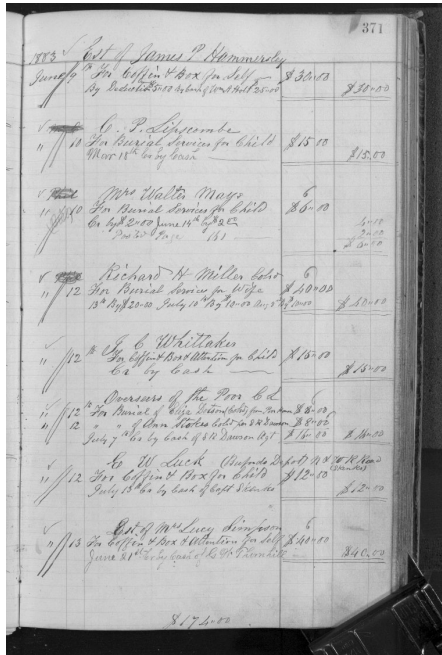 371
1883 Est of James P Hammersley
June 9 For Coffin & Box for Self $30-00
By 25-00 $30-00
C. P. Lipscombe
" 10 For Burial Services for Child $15-00
Cr by Cash $15.00
Mrs Walter Mays 6
" 10 For Burial Services for Child $6-00
Cr by $2-00 June 14th by $2
Posted Page 161
Richard H Miller Cold 6
" 12 For Burial Services for Wife $40-00
13th By $20-00 July 10th By 10-00 By 10-00 $40-00
J C Whittaker
" 12th For Coffin & Box & Attention for Child $15-00
Cr by Cash $15-00
Overseers of the Poor C L 6
" 12th For Burial of $8-00
" 12 " " of Ann Stokes Cold for S R Dawson $8-00
July 7th Cr by Cash of S R Dawson Agt $16-00 $16-00
E W Luck (Bufords Depot) N & W R Road
" 12 For Coffin & Box for Child $12-00
July 13th Cr by Cash of Capt $12-00
Est of Mrs Lucy Simpson 6
" 13 For Coffin & Box & Attention for Self $40-00
June 21st Cr by Cash of W Thornhill $40.00
$174-00